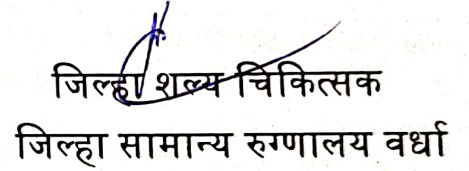 जिल्हा शल्य चिकित्सक
जिल्हा सामान्य रुग्णालय वर्धा